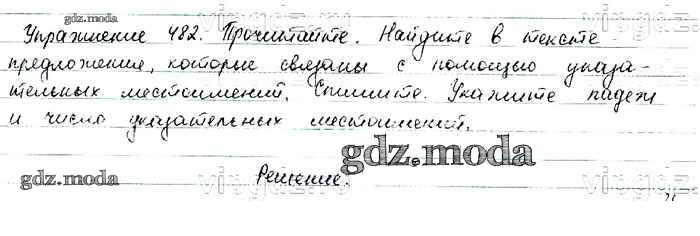 Упражнение 482. Прочитайте. Найдите в тексте
предложения, которые связаны с помощью указа-
тельных местоимений. Спишите. Укажите падеж
и число указательных местоимений.
gdz.moda
gdz.moda
Решение.
gdz.moda